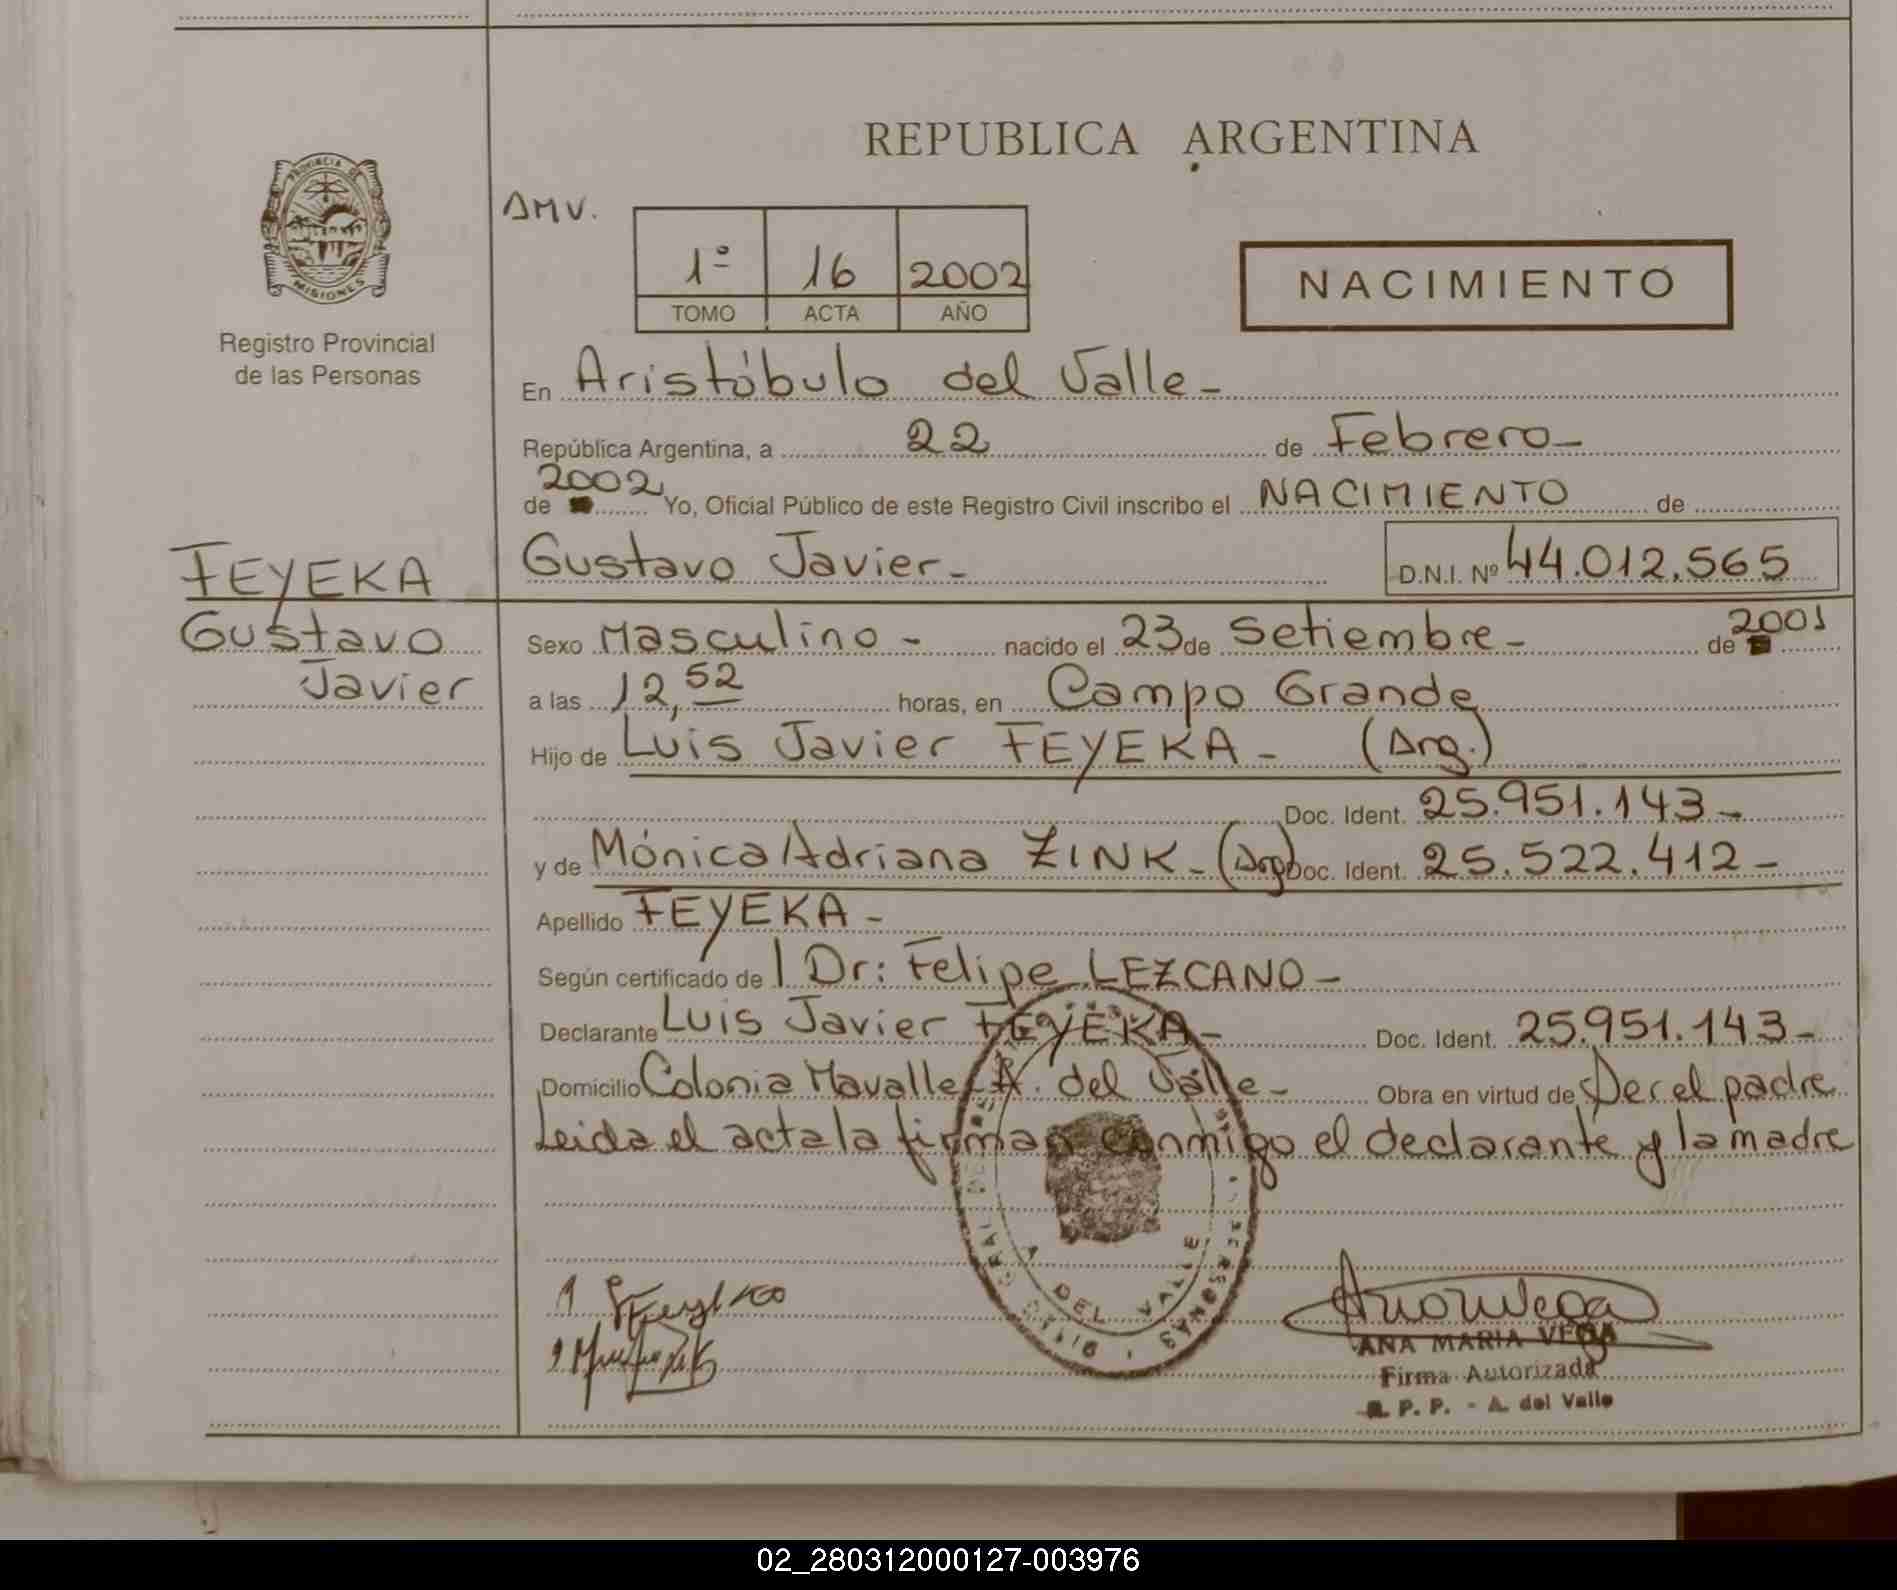 REPUBLICA ARGENTINA
PROVINCIA DE
MISIONES
Registro Provincial
de las Personas
AMV.
1º 16 2002
TOMO ACTA AÑO
NACIMIENTO
En Aristóbulo del Valle-
República Argentina, a 22 de Febrero-
de 2002 Yo, Oficial Público de este Registro Civil inscribo el NACIMIENTO de
Gustavo Javier- D.N.I. Nº 44.012.565
FEYEKA
Gustavo
Javier
Sexo Masculino - nacido el 23 de Setiembre - de 2001
a las 12,52 horas, en Campo Grande
Hijo de Luis Javier FEYEKA - (Arg.)
Doc. Ident. 25.951.143-
y de Mónica Adriana ZINK - (Arg) Doc. Ident. 25.522.412-
Apellido FEYEKA -
Según certificado de Dr: Felipe LEZCANO-
Declarante Luis Javier FEYEKA- Doc. Ident. 25.951.143-
Domicilio Colonia Mavalle- A. del Valle- Obra en virtud de Ser el padre
Leida el acta la firman conmigo el declarante y la madre
A DEL VALLE
ANA MARIA VEGA
Firma Autorizada
R. P. P. - A. del Valle
02_280312000127-003976